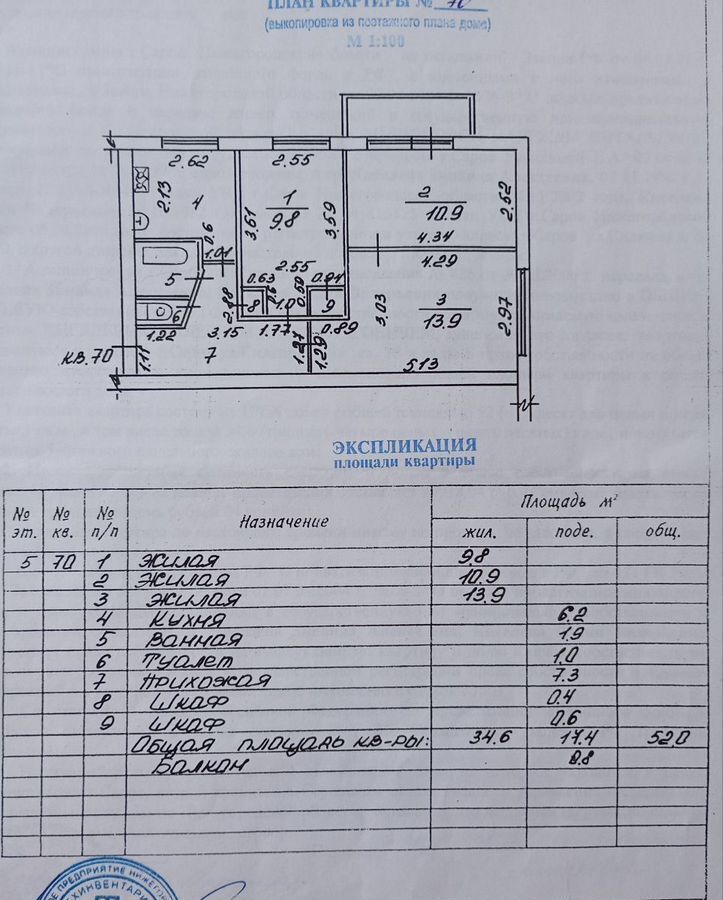 ПЛАН КВАРТИРЫ № 70
(выкопировка из поэтажного плана дома)
М 1:100
2.62
2.55
2.13
4
1
9.8
3.61
3.59
2
10.9
2.52
4.34
4.29
0.6
1.01
5
6
1.22
2.88
2.55
0.63
0.6
8
1.0
0.50
0.94
9
3.15
1.77
0.89
3.03
3
13.9
2.97
КВ.70
1.11
7
1.27
1.29
5.13
ЭКСПЛИКАЦИЯ
площади квартиры
№ эт. № кв. № п/п Назначение Площадь м²
жил. подс. общ.
5 70 1 Жилая 9.8
2 Жилая 10.9
3 Жилая 13.9
4 Кухня 6.2
5 Ванная 1.9
6 Туалет 1.0
7 Прихожая 7.3
8 Шкаф 0.4
9 Шкаф 0.6
Общая площадь кв-ры: 34.6 17.4 52.0
Балкон 0.8